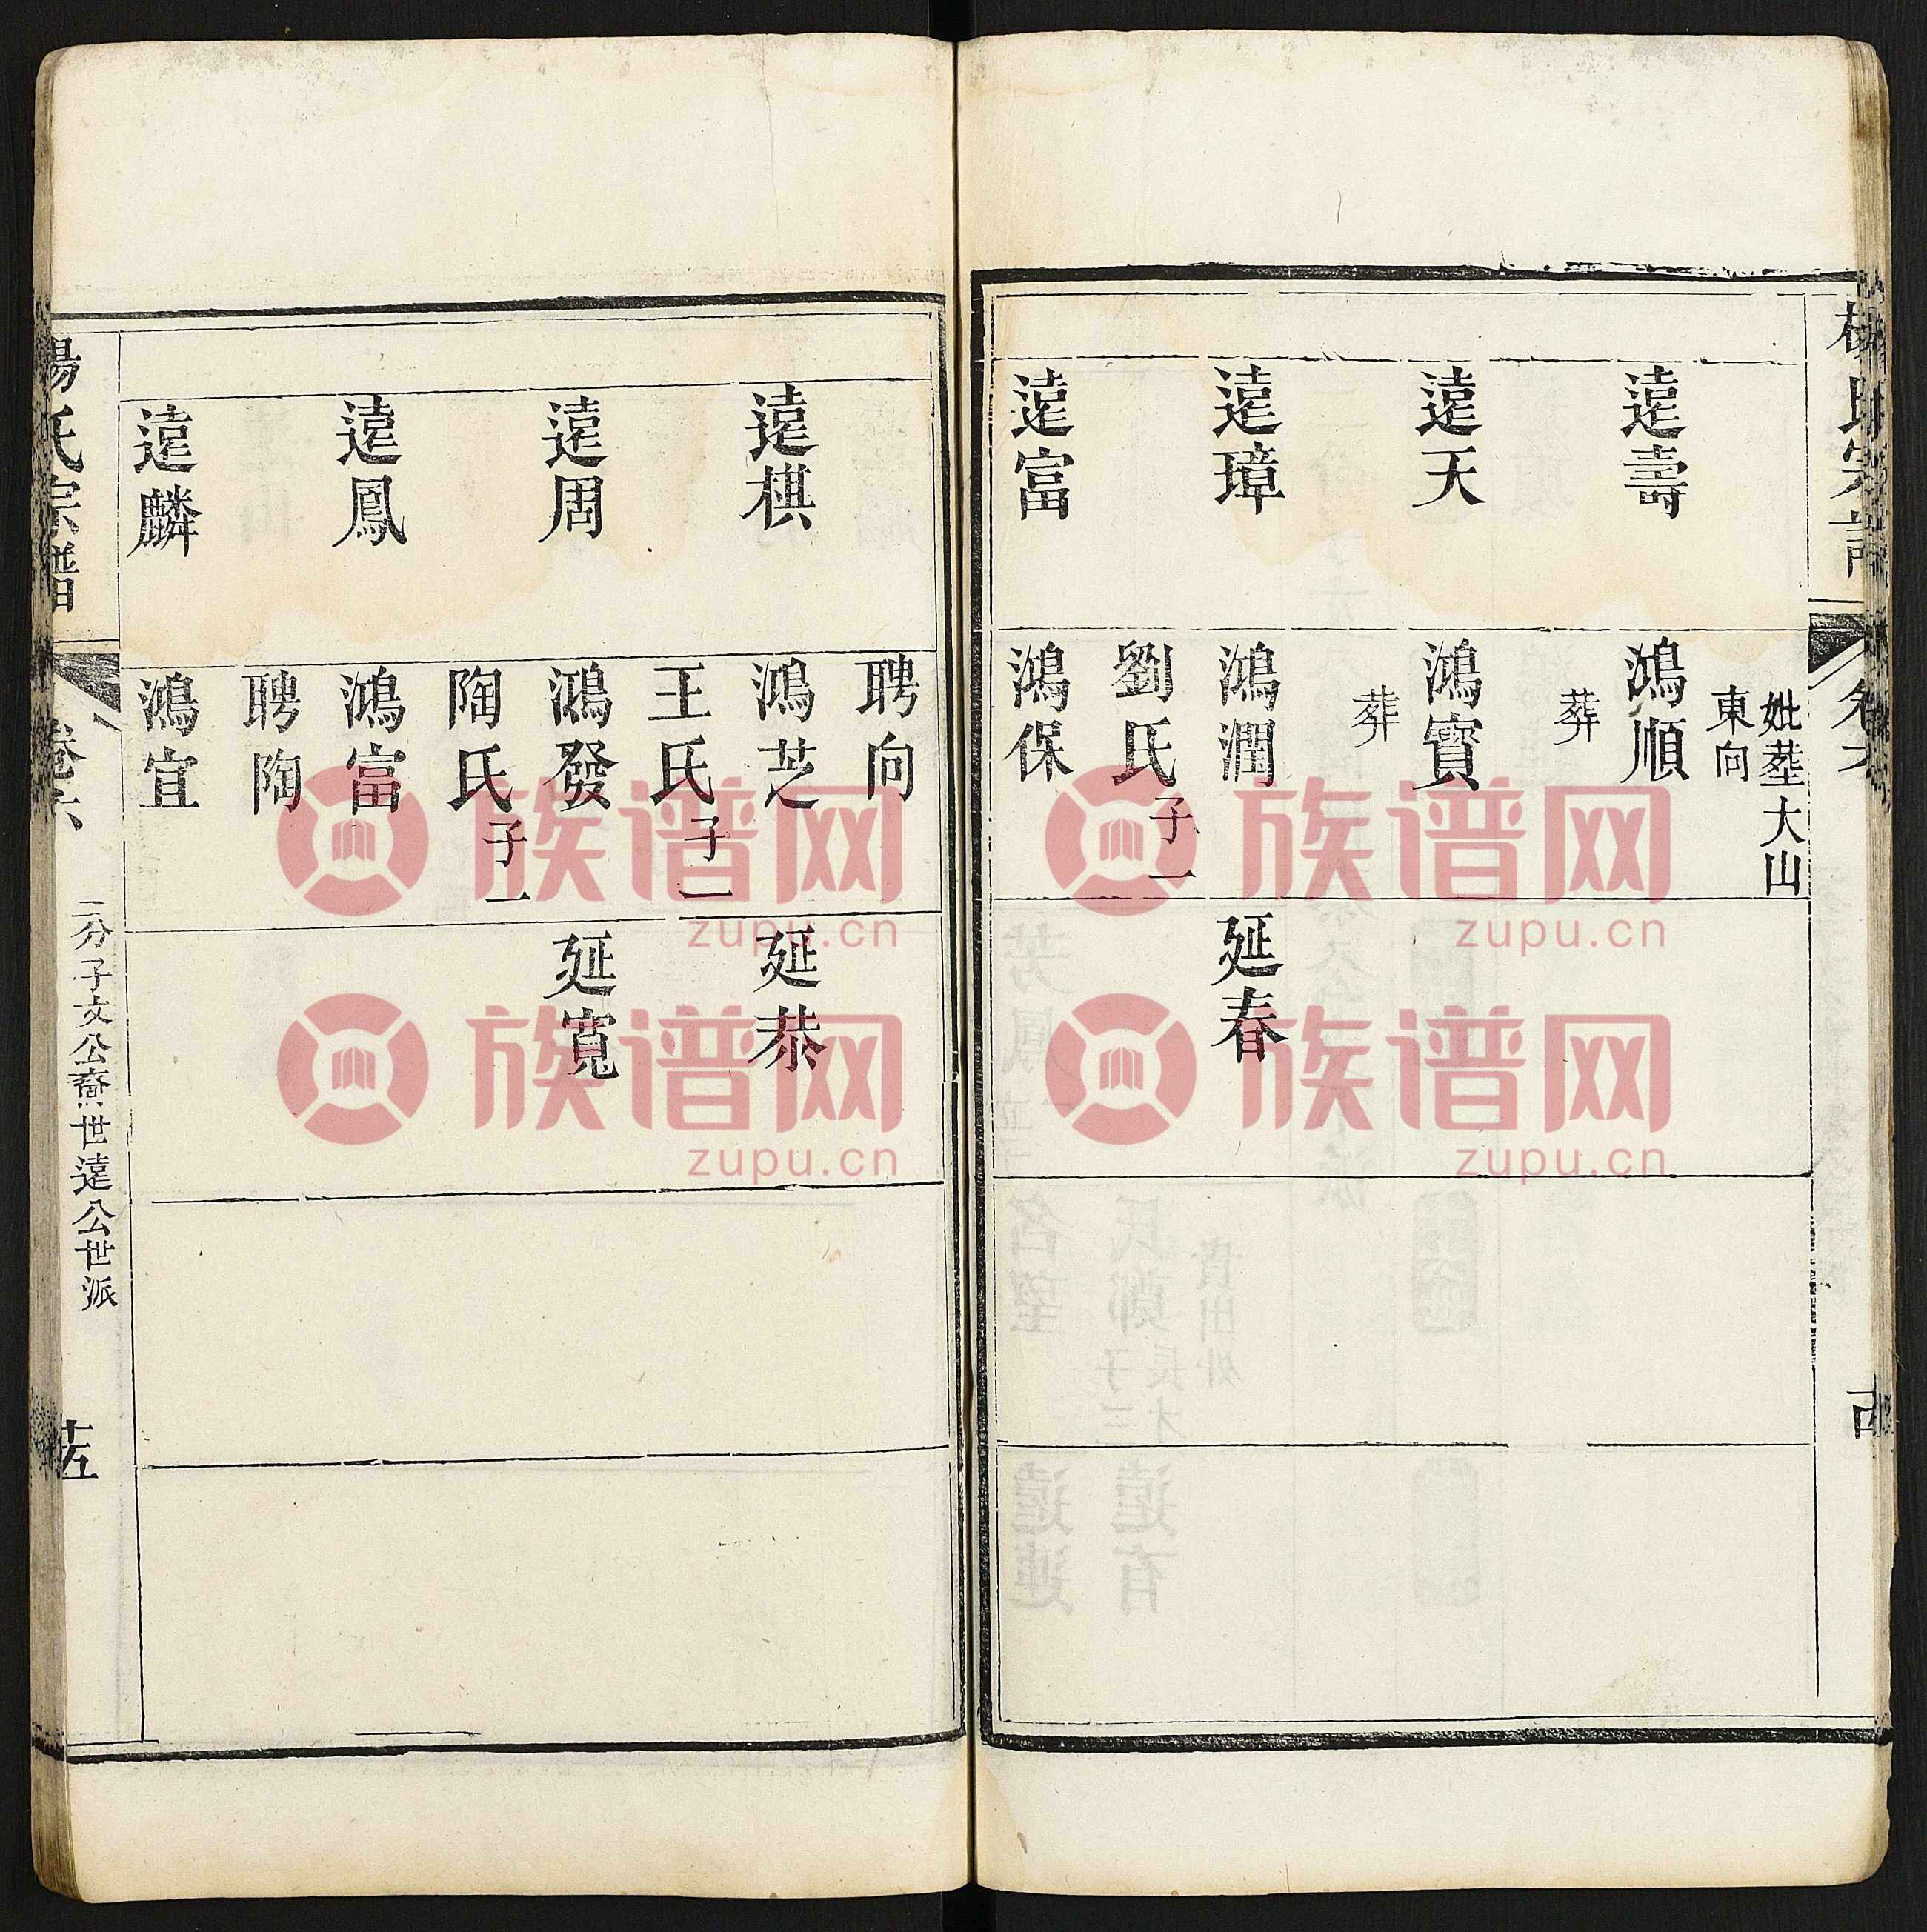 妣塟大山
東向
遠壽
鴻順
葬
遠天
鴻寳
葬
遠璋
鴻潤
延春
劉氏子一
遠富
鴻保
聘向
遠棋
鴻芝
延恭
王氏子一
遠周
鴻發
延寬
陶氏子一
遠鳳
鴻富
聘陶
遠麟
鴻宜
楊氏宗譜
卷六
二分子文公裔世遠公世派
族谱网
zupu.cn
族谱网
zupu.cn
族谱网
zupu.cn
族谱网
zupu.cn